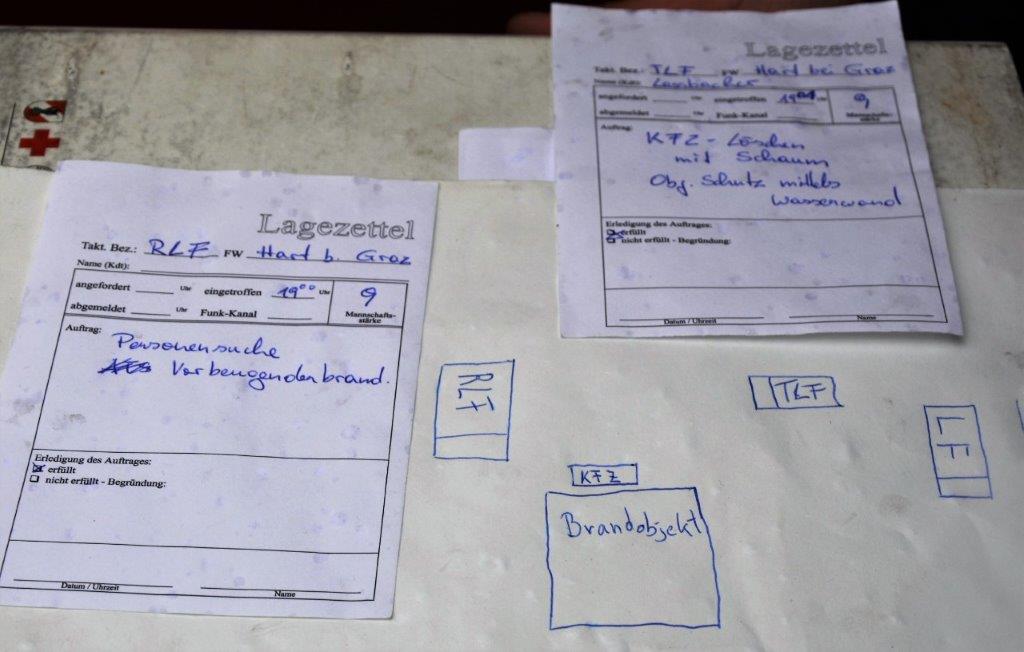 Lagezettel
Takt. Bez.: RLF FW Hart b. Graz
Name (Kdt):
angefordert Uhr eingetroffen 19⁰⁰ Uhr 9
abgemeldet Uhr Funk-Kanal Mannschafts-
stärke
Auftrag:
Personensuche
Vorbeugenden brand.
Erledigung des Auftrages:
☒ erfüllt
☐ nicht erfüllt - Begründung:
Datum / Uhrzeit Name
Lagezettel
Takt. Bez.: TLF FW Hart bei Graz
Name (Kdt)
angefordert Uhr eingetroffen Uhr 9
abgemeldet Uhr Funk-Kanal Mannschafts-
stärke
Auftrag:
KFZ - Löschen
mit Schaum
Obj. Schutz mittels
Wasserwand
Erledigung des Auftrages:
☒ erfüllt
☐ nicht erfüllt - Begründung:
Datum / Uhrzeit Name
RLF
TLF
LF
KFZ
Brandobjekt